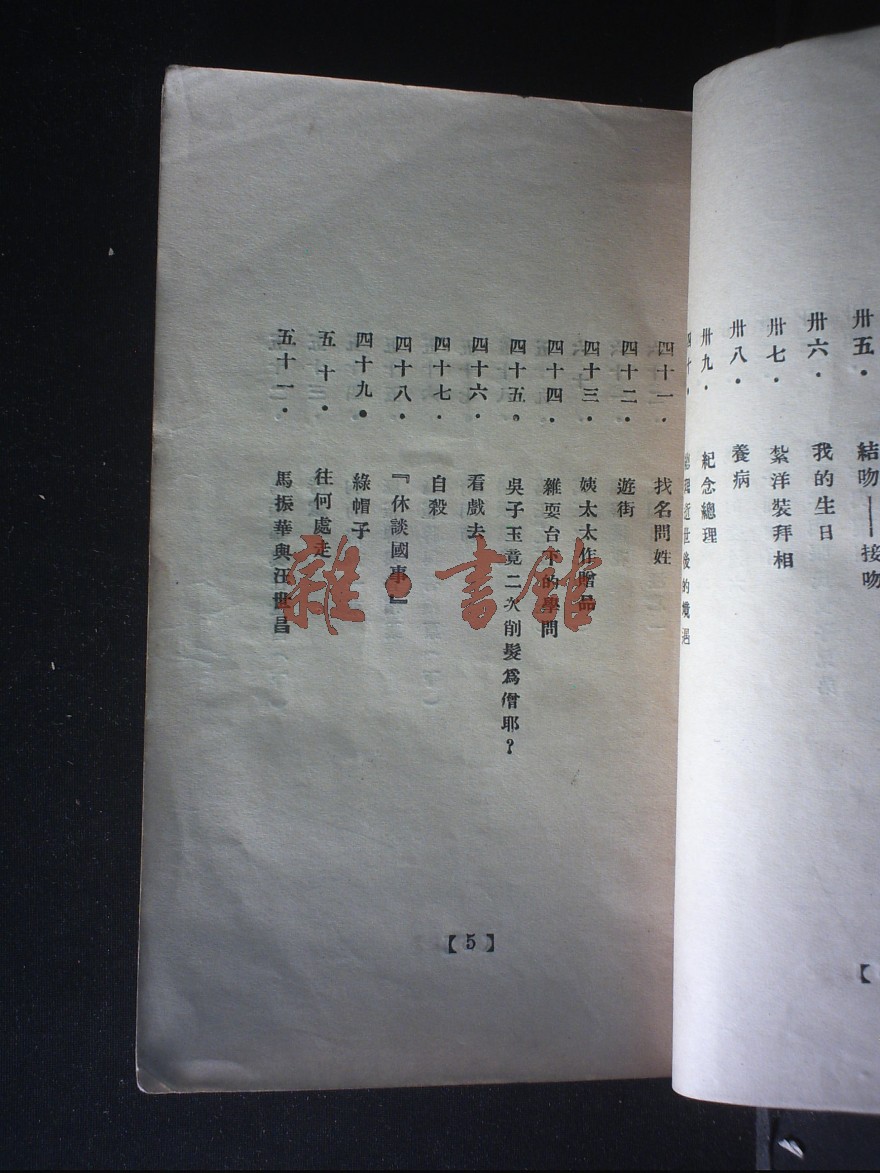 卅五．結吻——接吻
卅六．我的生日
卅七．紮洋裝拜相
卅八．養病
卅九．紀念總理
四十．逝世後的境遇
四十一．找名問姓
四十二．遊街
四十三．姨太太作贈品
四十四．雜耍台本的學問
四十五．吳子玉竟二次削髮爲僧耶？
四十六．看戲去
四十七．自殺
四十八．『休談國事』
四十九．綠帽子
五十．往何處走
五十一．馬振華與汪世昌
【5】
雜·書館